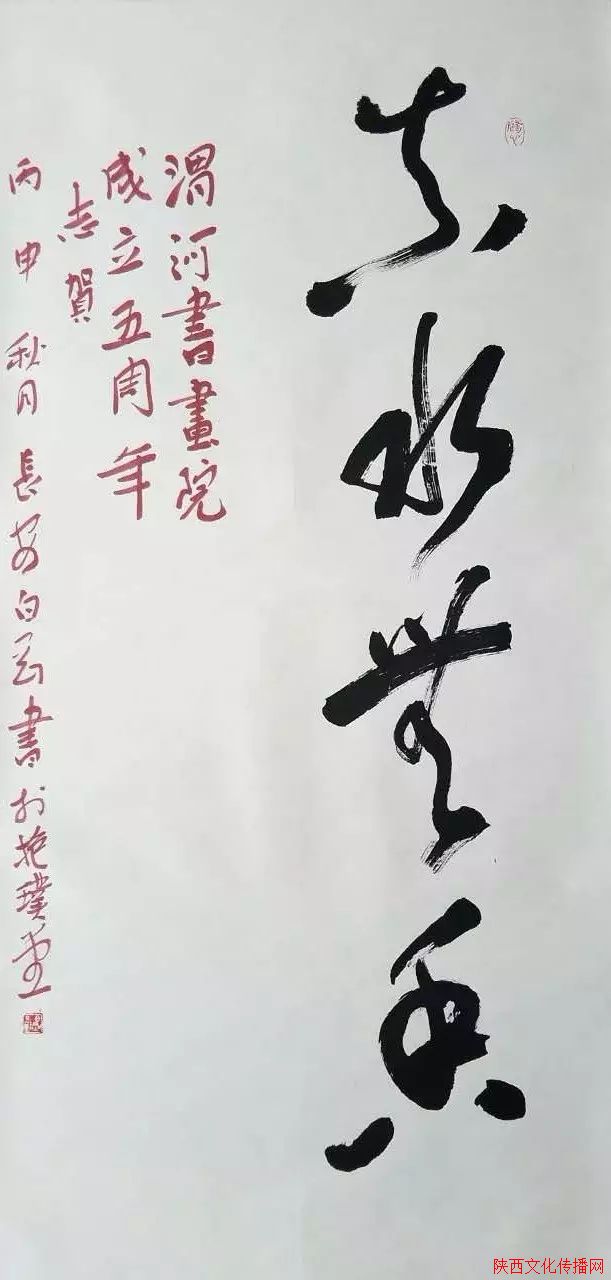 真水無香
渭河書畫院
成立五周年
志賀
丙申秋月長安白雲書於抱璞堂
陕西文化传播网